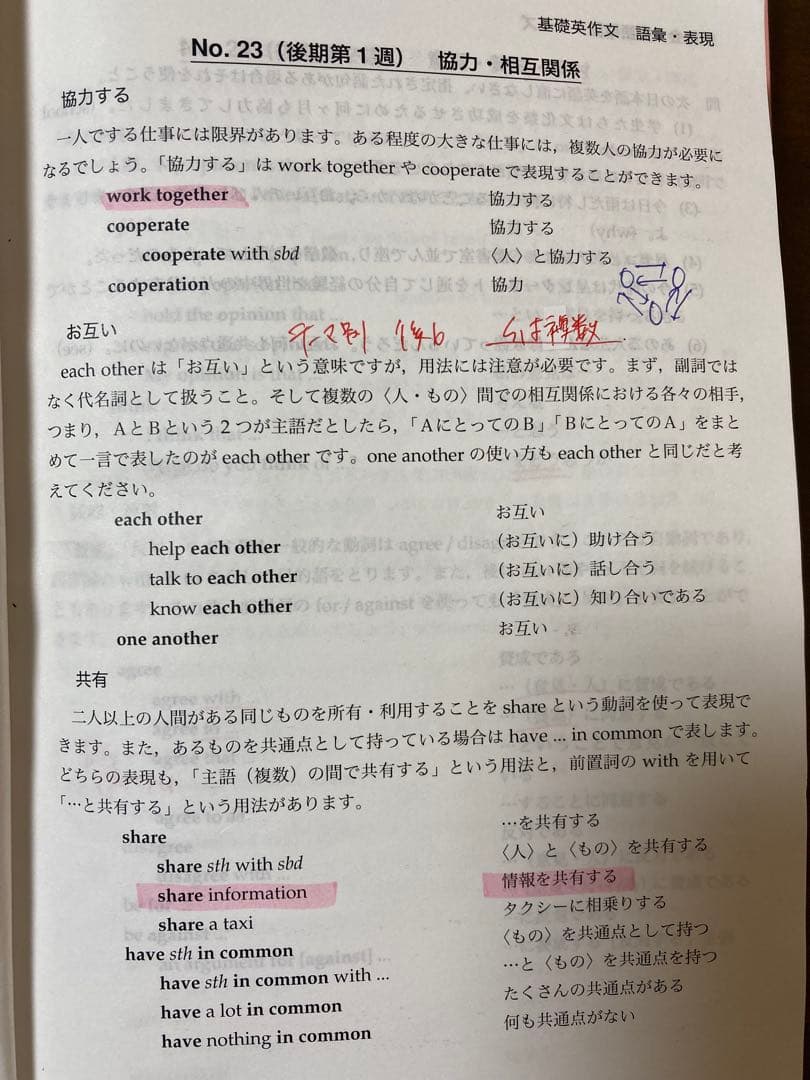 基礎英作文 語彙・表現
No. 23(後期第1週) 協力・相互関係
協力する
一人でする仕事には限界があります。ある程度の大きな仕事には,複数人の協力が必要に
なるでしょう。「協力する」は work together や cooperate で表現することができます。
work together 協力する
cooperate 協力する
cooperate with sbd 〈人〉と協力する
cooperation 協力
お互い
テーマ別 後6 Sは複数.
each other は「お互い」という意味ですが,用法には注意が必要です。まず,副詞では
なく代名詞として扱うこと。そして複数の〈人・もの〉間での相互関係における各々の相手,
つまり,AとBという2つが主語だとしたら,「AにとってのB」「BにとってのA」をまと
めて一言で表したのが each other です。one another の使い方も each other と同じだと考
えてください。
each other お互い
help each other (お互いに)助け合う
talk to each other (お互いに)話し合う
know each other (お互いに)知り合いである
one another お互い
共有
二人以上の人間がある同じものを所有・利用することを share という動詞を使って表現で
きます。また,あるものを共通点として持っている場合は have ... in common で表します。
どちらの表現も,「主語(複数)の間で共有する」という用法と,前置詞の with を用いて
「…と共有する」という用法があります。
share …を共有する
share sth with sbd 〈人〉と〈もの〉を共有する
share information 情報を共有する
share a taxi タクシーに相乗りする
have sth in common 〈もの〉を共通点として持つ
have sth in common with ... …と〈もの〉を共通点を持つ
have a lot in common たくさんの共通点がある
have nothing in common 何も共通点がない